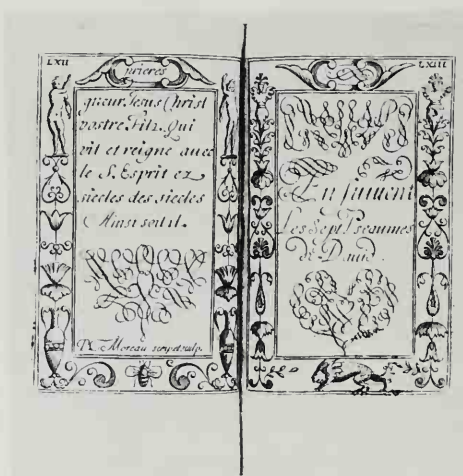 LXII
Prieres
gneur Jesus Christ
vostre Filz. Qui
vit et reigne auec
le S. Esprit ez
siecles des siecles
Ainsi soit il.
Moreau scrip. et sculp.
LXIII
En suiuent
Les Sept Pseaumes
de Dauid.